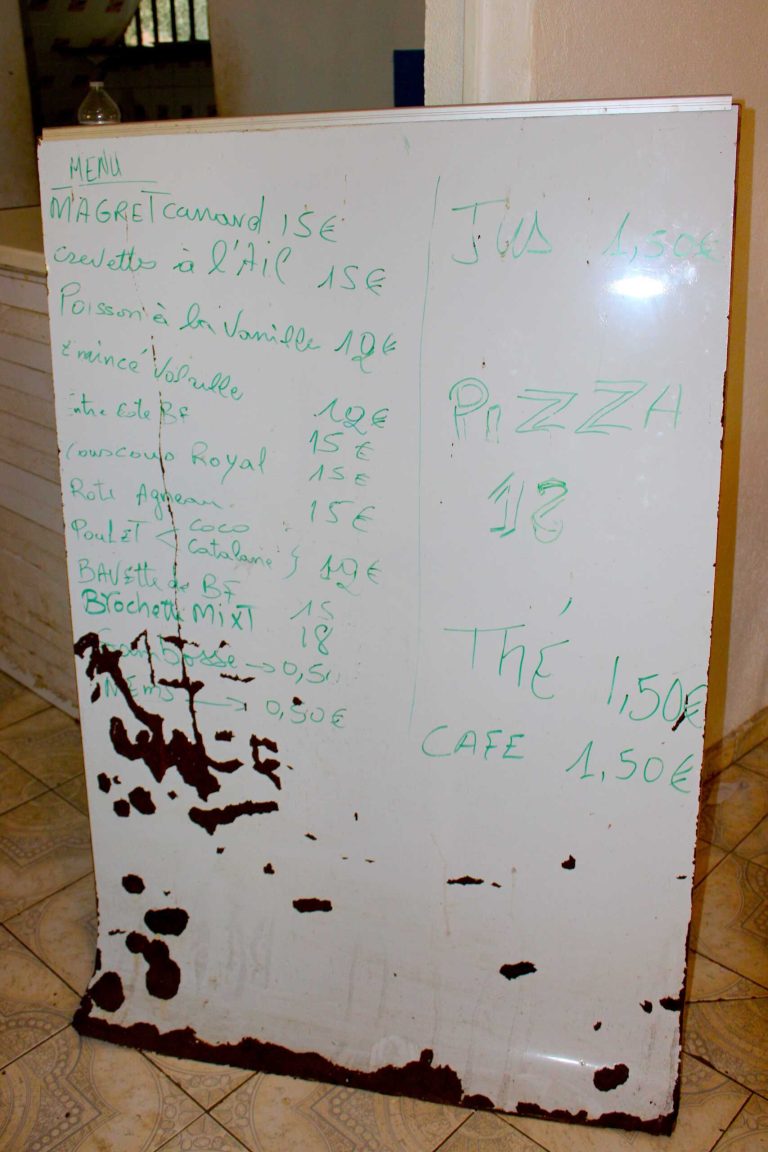 MENU
MAGRET canard 15€
crevettes à l'Ail 15€
Poisson à la Vanille 12€
Emincé Volaille 12€
Entre Cote BF 15€
Couscous Royal 15€
Roti Agneau 15€
POULET < coco
catalane } 12€
BAVETTE de BF 15
Brochette MIXT 18
→ 0,50
NEMS → 0,50€
JUS 1,50€
PIZZA
THÉ 1,50€
CAFE 1,50€